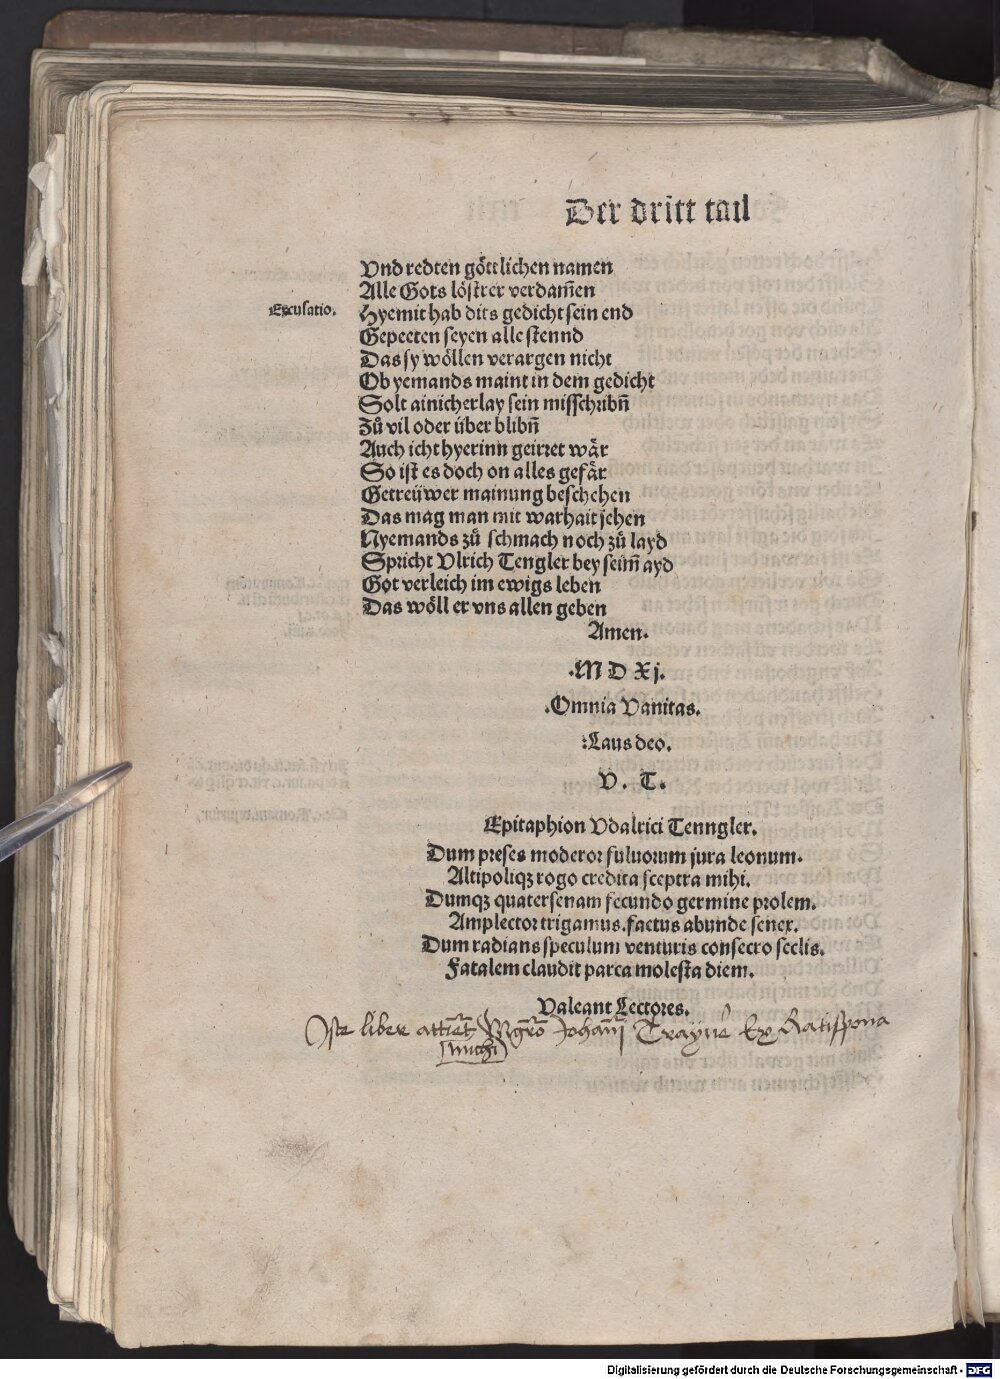 Der dritt tail
Vnd redten göttlichen namen
Alle Gots löstrer verdam̄en
Excusatio.
Hyemit hab dits gedicht sein end
Gepeeten seyen alle stennd
Das sy wöllen verargen nicht
Ob yemands maint in dem gedicht
Solt ainicherlay sein missschribn̄
Zů vil oder über blibn̄
Auch icht hyerinn geirret wår
So ist es doch on alles gefår
Getreüwer mainung beschehen
Das mag man mit warhait jehen
Nyemands zů schmach noch zů layd
Spricht Vlrich Tengler bey seim̄ ayd
Got verleich im ewigs leben
Das wöll er vns allen geben
Amen.
.M D Xj.
.Omnia Vanitas.
:Laus deo.
V. T.
Epitaphion Vdalrici Tenngler.
Dum preses moderor fuluorum jura leonum.
Altipoliqꝫ rogo credita sceptra mihi.
Dumqꝫ quater senam fecundo germine prolem.
Amplector trigamus. factus abunde senex.
Dum radians speculum venturis consecro seclis.
Fatalem claudit parca molesta diem.
Valeant Lectores.
Iste liber Johanni Ex Ratispona